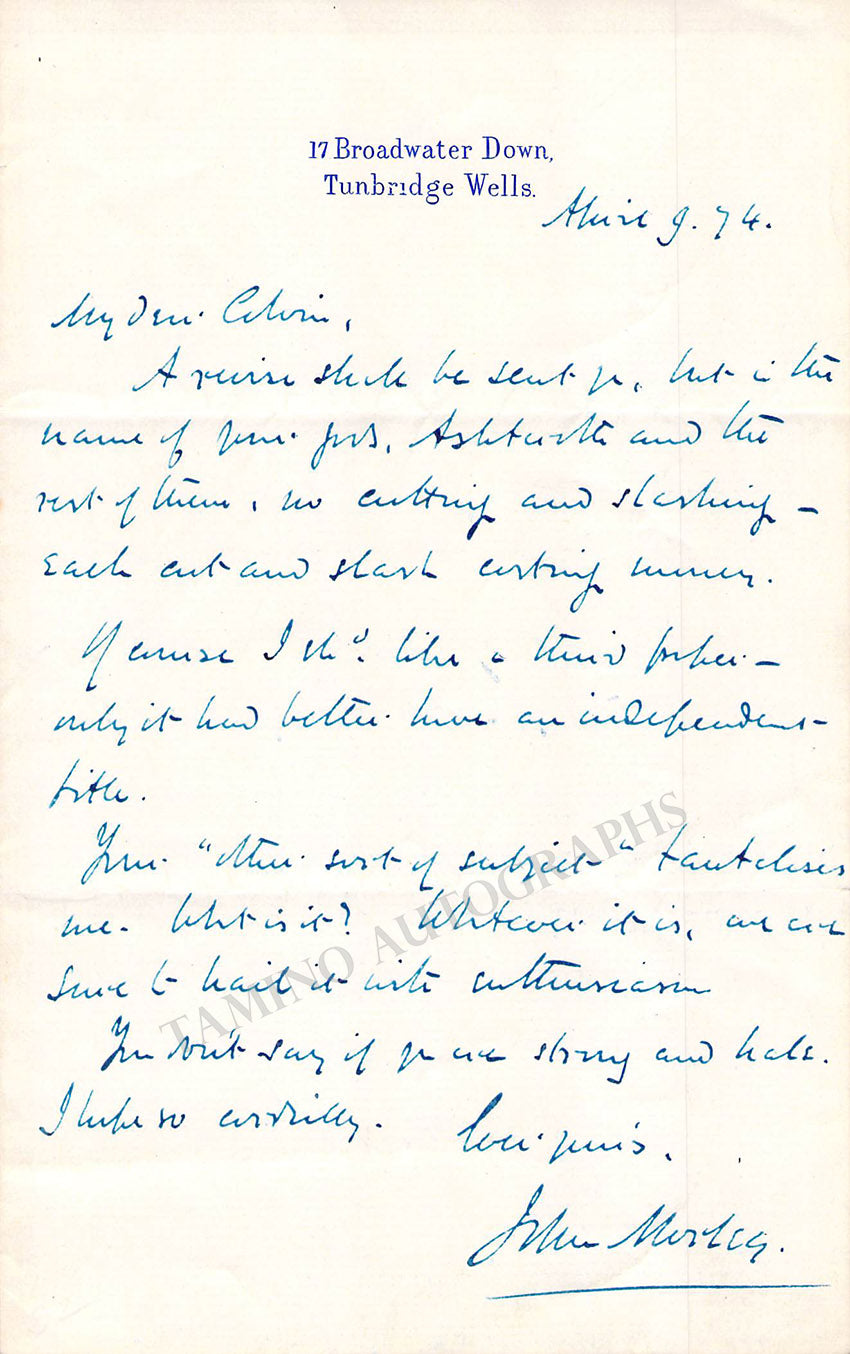 17 Broadwater Down,
Tunbridge Wells.
April 9. 74.
My dear Colvin,
A revise shall be sent yr, but in the
name of your gods, Ashtaroth and the
rest of them, no cutting and slashing –
Each cut and slash costing money.
Of course I shd. like a third paper –
only it had better have an independent
title.
Your "other sort of subject" tantalises
me. What is it? Whatever it is, we are
sure to hail it with enthusiasm
You don't say if yr are strong and hale.
I hope so cordially.
Ever yours,
John Morley.
TAMINO AUTOGRAPHS